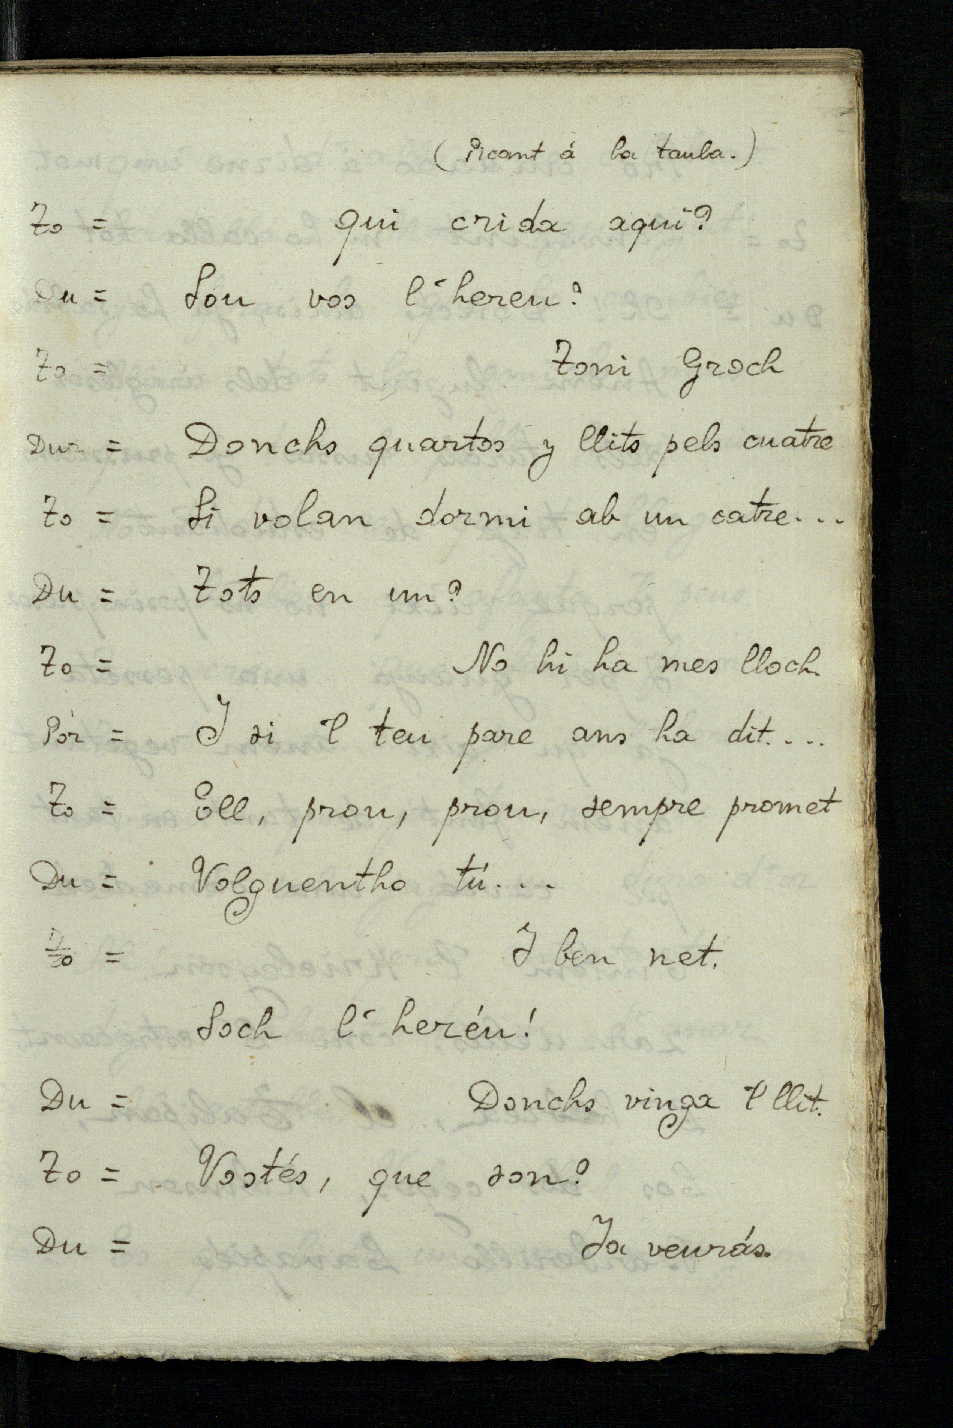 (Picant á la taula.)
To = qui crida aquí?
Du = Sou vos l'hereu?
To = Toni Groch
Dur = Donchs quartos y llits pels cuatre
To = Si volan dormi ab un catre...
Du = Tots en un?
To = No hi ha mes lloch.
Pór = I si 'l teu pare ans ha dit....
To = Ell, prou, prou, sempre promet
Du = Volguentho tú....
To = I ben net.
Soch l'heréu!
Du = Donchs vinga 'l llit.
To = Vostés, que son?
Du = Ja veurás.